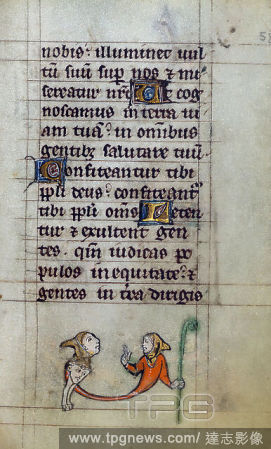 nobis: illuminet uul
tū suū sup nos & mi
sereatur nr̄i Et cog
noscamus in terra ui
am tuā: in omībus
gentibȝ salutare tuū
Confiteantur tibi
ppli deus: confiteant
tibi ppli om̄s Leten
tur & exultent gen
tes. qm̄ iudicas po
pulos in equitate: &
gentes in t̄ra dirigis
58
TPG
www.tpgnews.com/達志影像